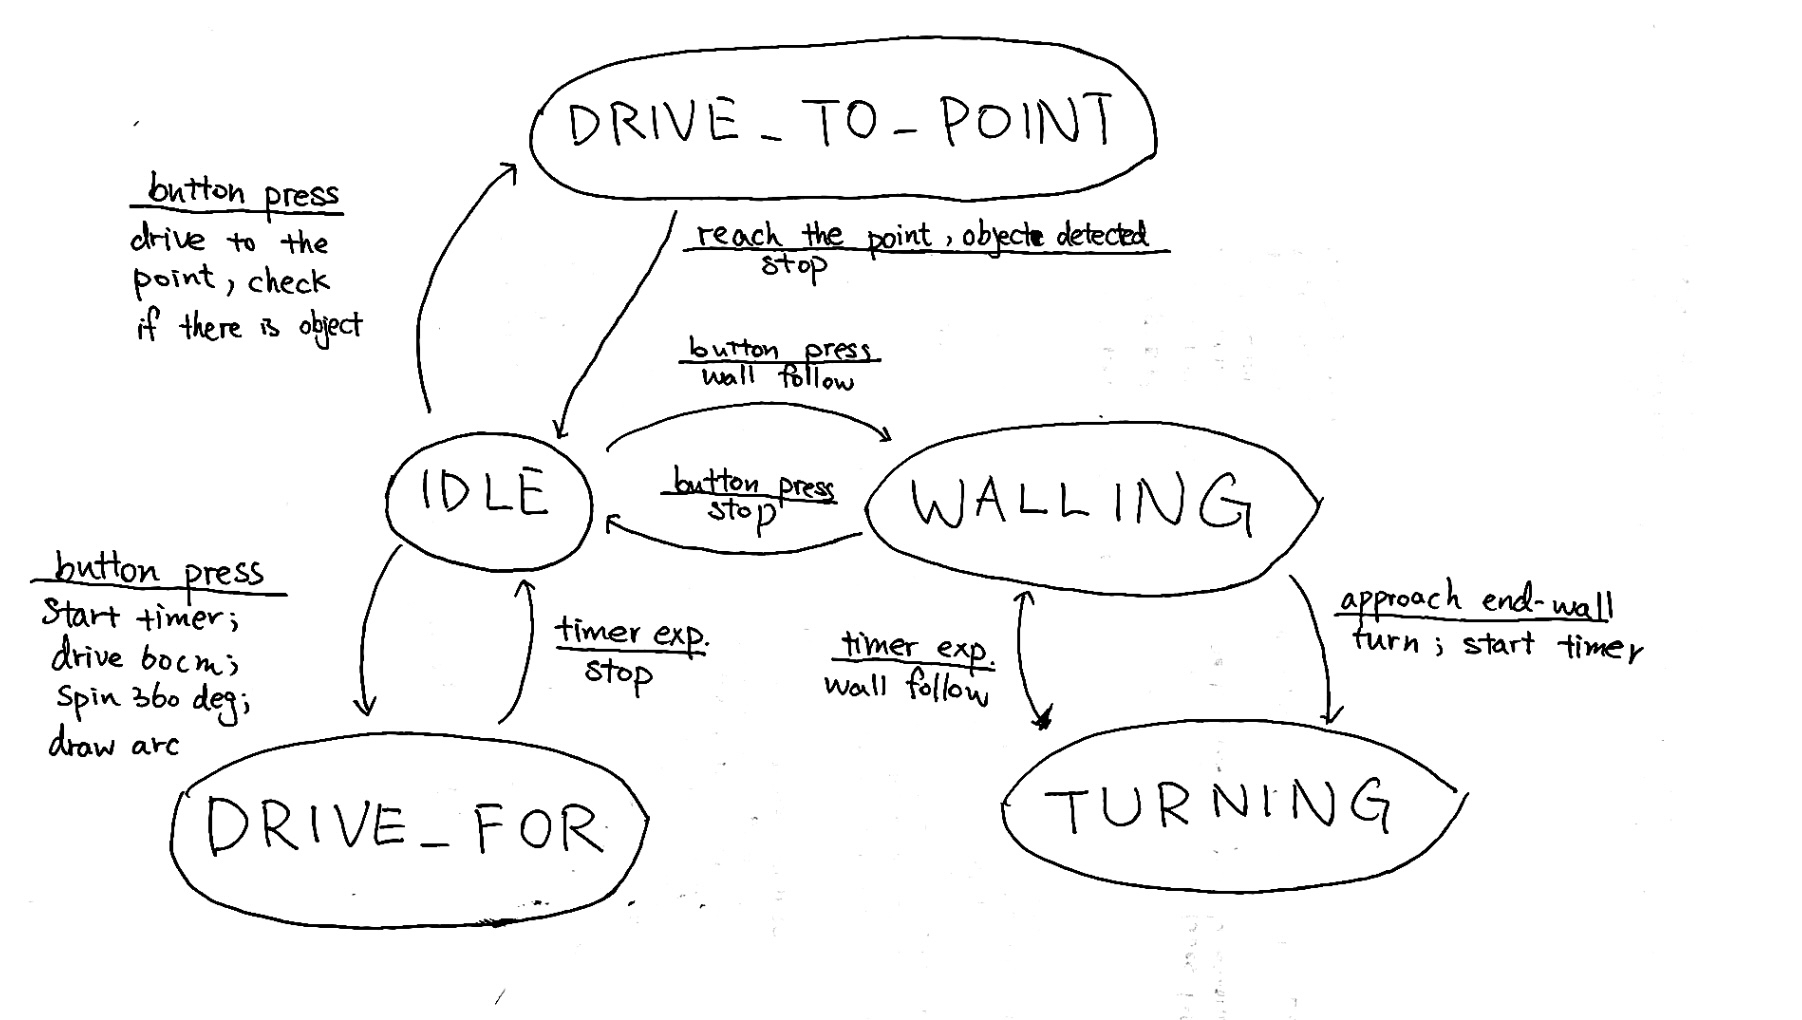 DRIVE_TO_POINT
button press
drive to the
point, check
if there is object
reach the point, object detected
stop
button press
wall follow
IDLE
button press
stop
WALLING
button press
start timer;
drive 60cm;
spin 360 deg;
draw arc
timer exp.
stop
timer exp.
wall follow
approach end-wall
turn; start timer
DRIVE_FOR
TURNING